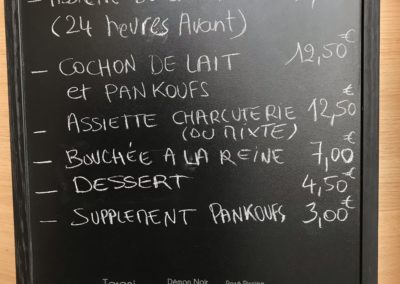 (24 heures Avant)
- COCHON DE LAIT 12,50€
et PANKOUFS
- ASSIETTE CHARCUTERIE 12,50€
(OU MIXTE)
- BOUCHÉE A LA REINE 7,00€
- DESSERT 4,50€
- SUPPLEMENT PANKOUFS 3,00€
Démon Noir